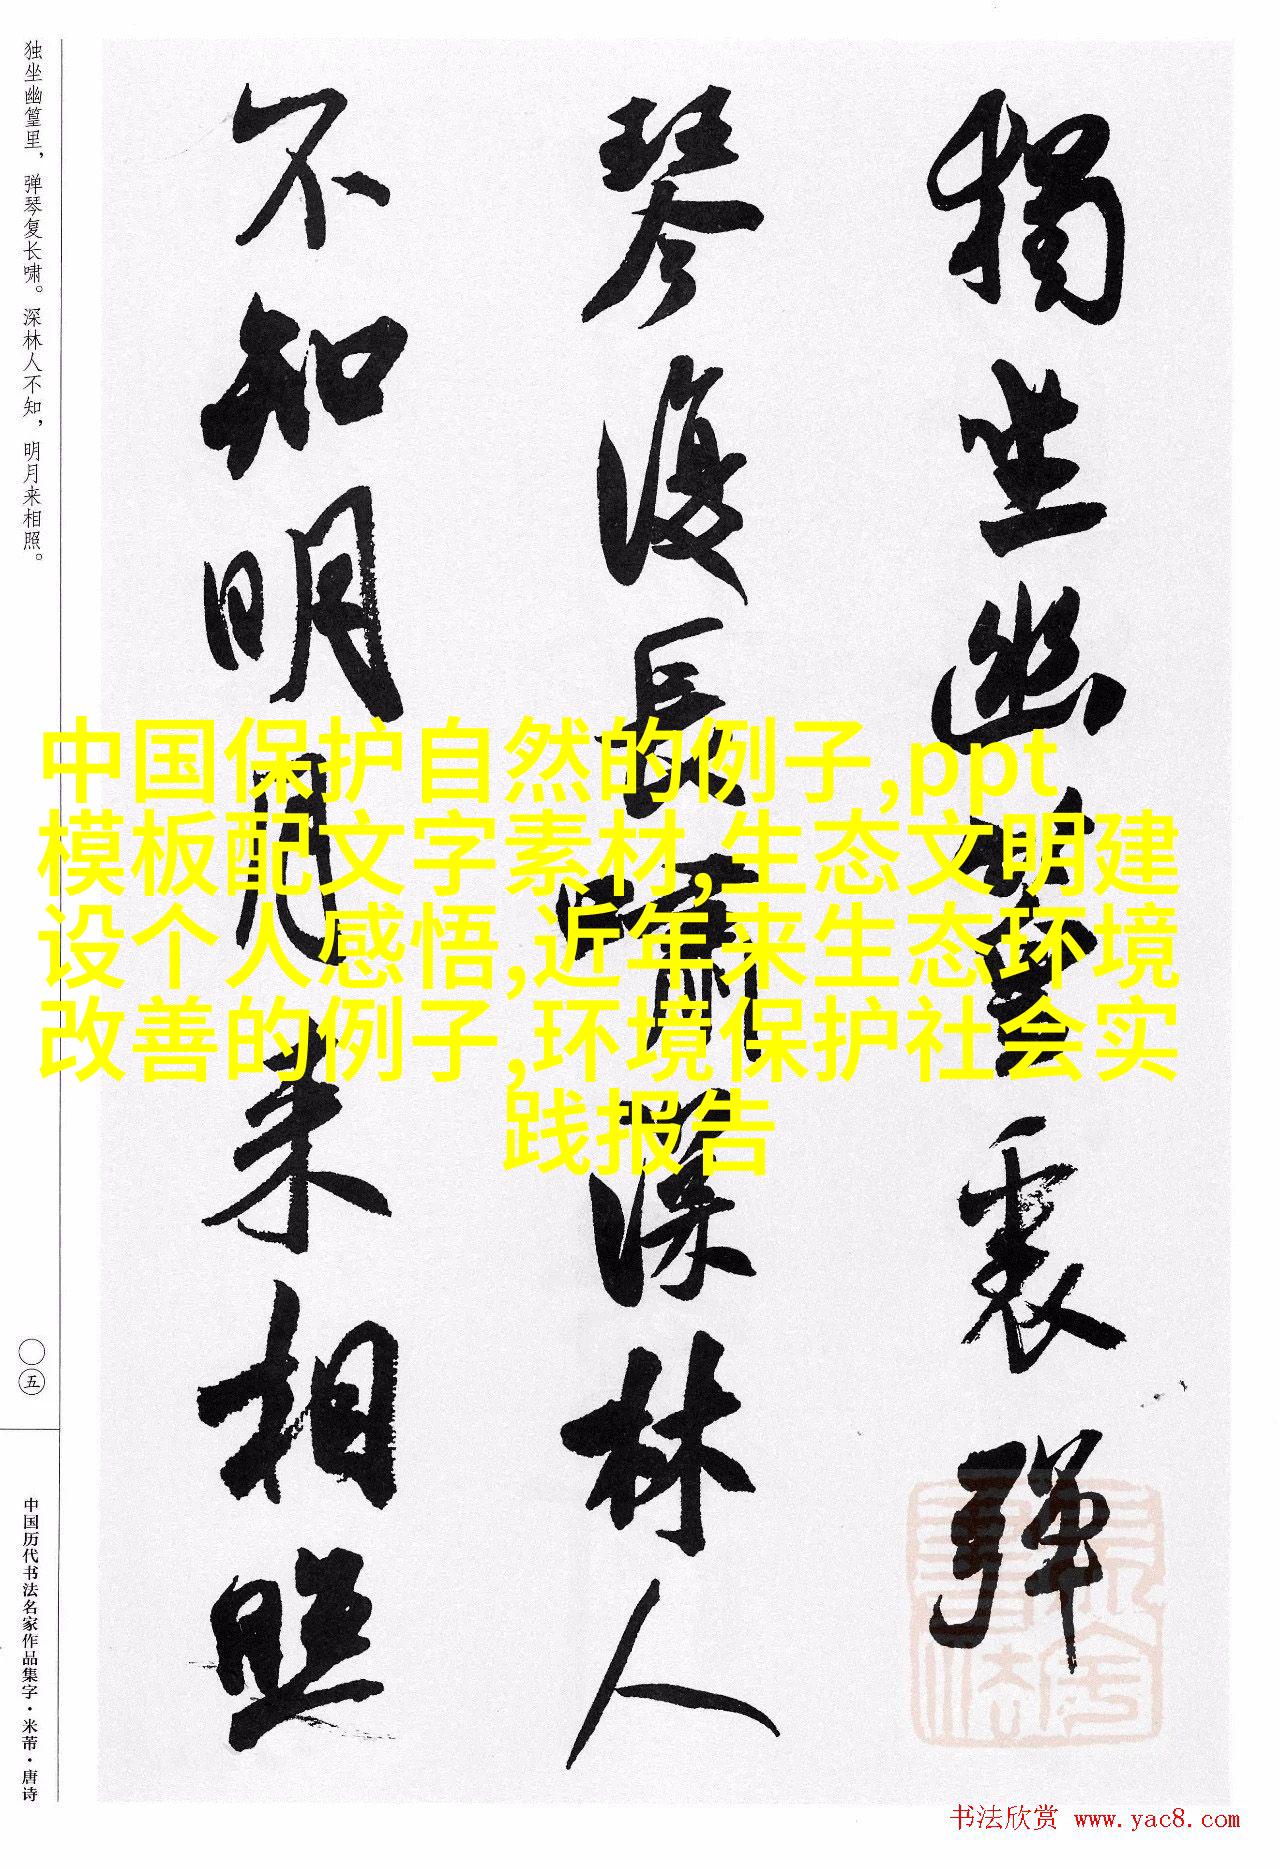 獨坐幽篁裏彈
琴復長嘯深林人
不知明月来相照
独坐幽篁里，弹琴复长啸。深林人不知，明月来相照。
〇五
中国历代书法名家作品集字·米芾·唐诗
中国保护自然的例子,ppt
模板配文字素材,生态文明建
设个人感悟,近年来生态环境
改善的例子,环境保护社会实
践报告
书法欣赏 www.yac8.com